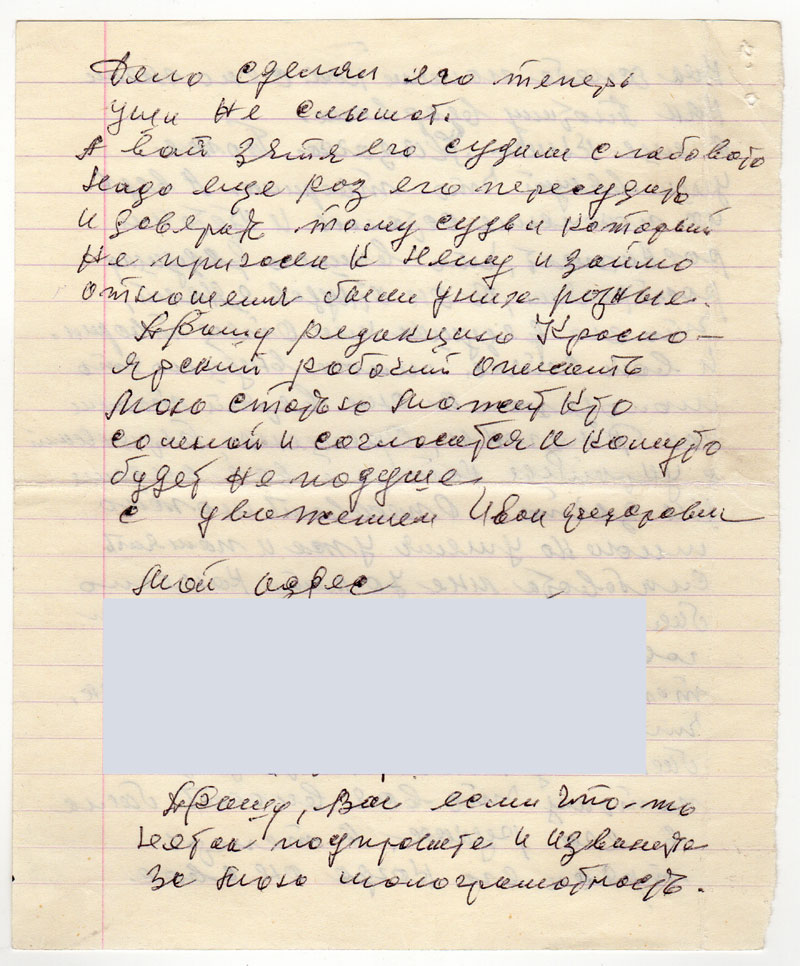 Дело сделал его теперь
уши не слышат.
А вот зятя его судили слабовато
надо еще роз его пересудить
и доверять тому судьи который
не причосен к нему и займо
отношения были уних розные.
Прошу редакцию Красно-
ярский рабочий описать
мою статью может кто
сомной и согласится а комуто
будет не подуше.
с уважением Иван
Мой адрес
Прошу, Вас если что-то
нетак подправте и извените
за мою малограмотность.